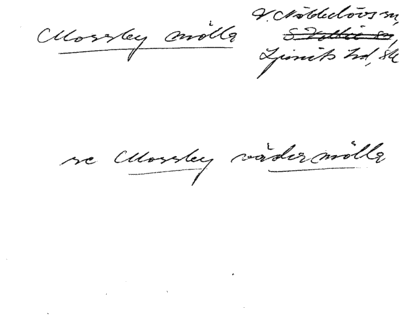 Mossby mölla V. Nöbbelövs sn,
Ljunits hd, Sk
se Mossby vädermölla